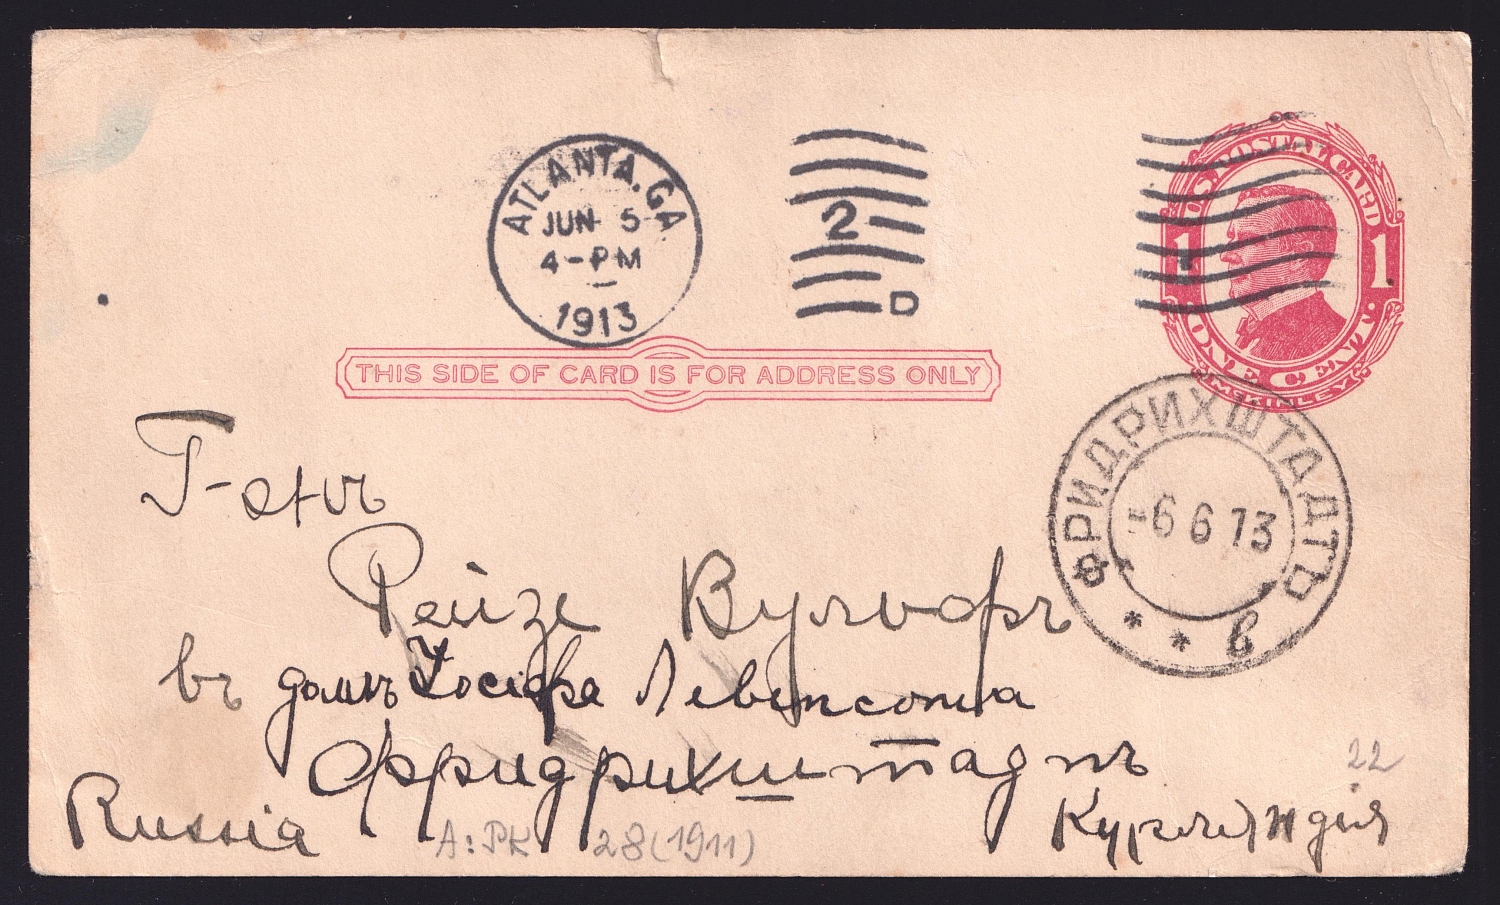 ATLANTA, GA.
JUN 5
4-PM
1913
2
D
U.S. POSTAL CARD
1 1
ONE CENT.
McKINLEY
THIS SIDE OF CARD IS FOR ADDRESS ONLY
ФРИДРИХШТАДТЪ
-6 6 13
* * в
Рейзе Вульфъ
въ домъ Іосифа Левенсона
Фридрихштадтъ
Russia
Курляндія
22
A: PK 28 (1911)